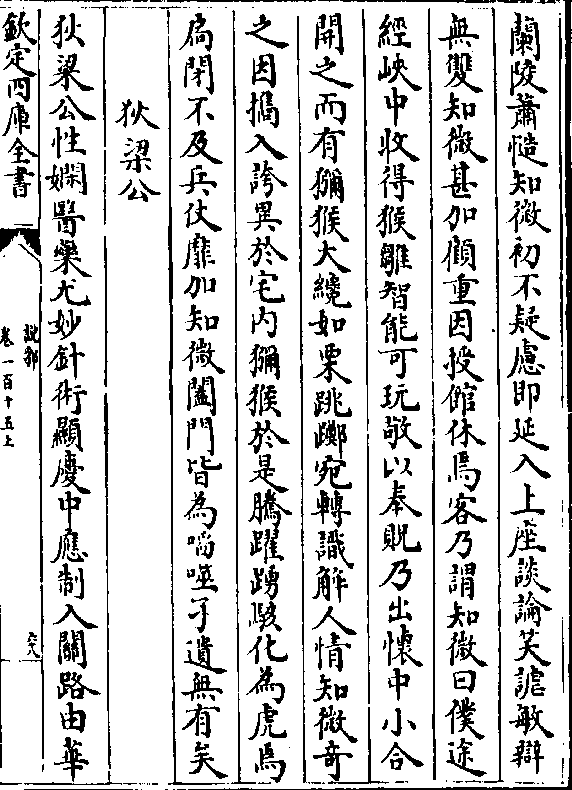 蘭陵蕭慥知微初不疑慮即延入上座談論笑謔敏辯
無雙知微甚加顧重因授館休焉客乃謂知微曰僕途
經峽中收得猴雛智能可玩敬以奉貺乃出懷中小合
開之而有獼猴大纔如栗跳躑宛轉識解人情知微奇
之因攜入誇異於宅内獼猴於是騰躍踴駭化為虎焉
扃閉不及兵仗靡加知微闔門皆為啗噬孑遺無有矣
狄梁公
狄梁公性嫻醫藥尤妙針術顯慶中應制入關路由華
欽定四庫全書
說郛
卷一百十五上
六八